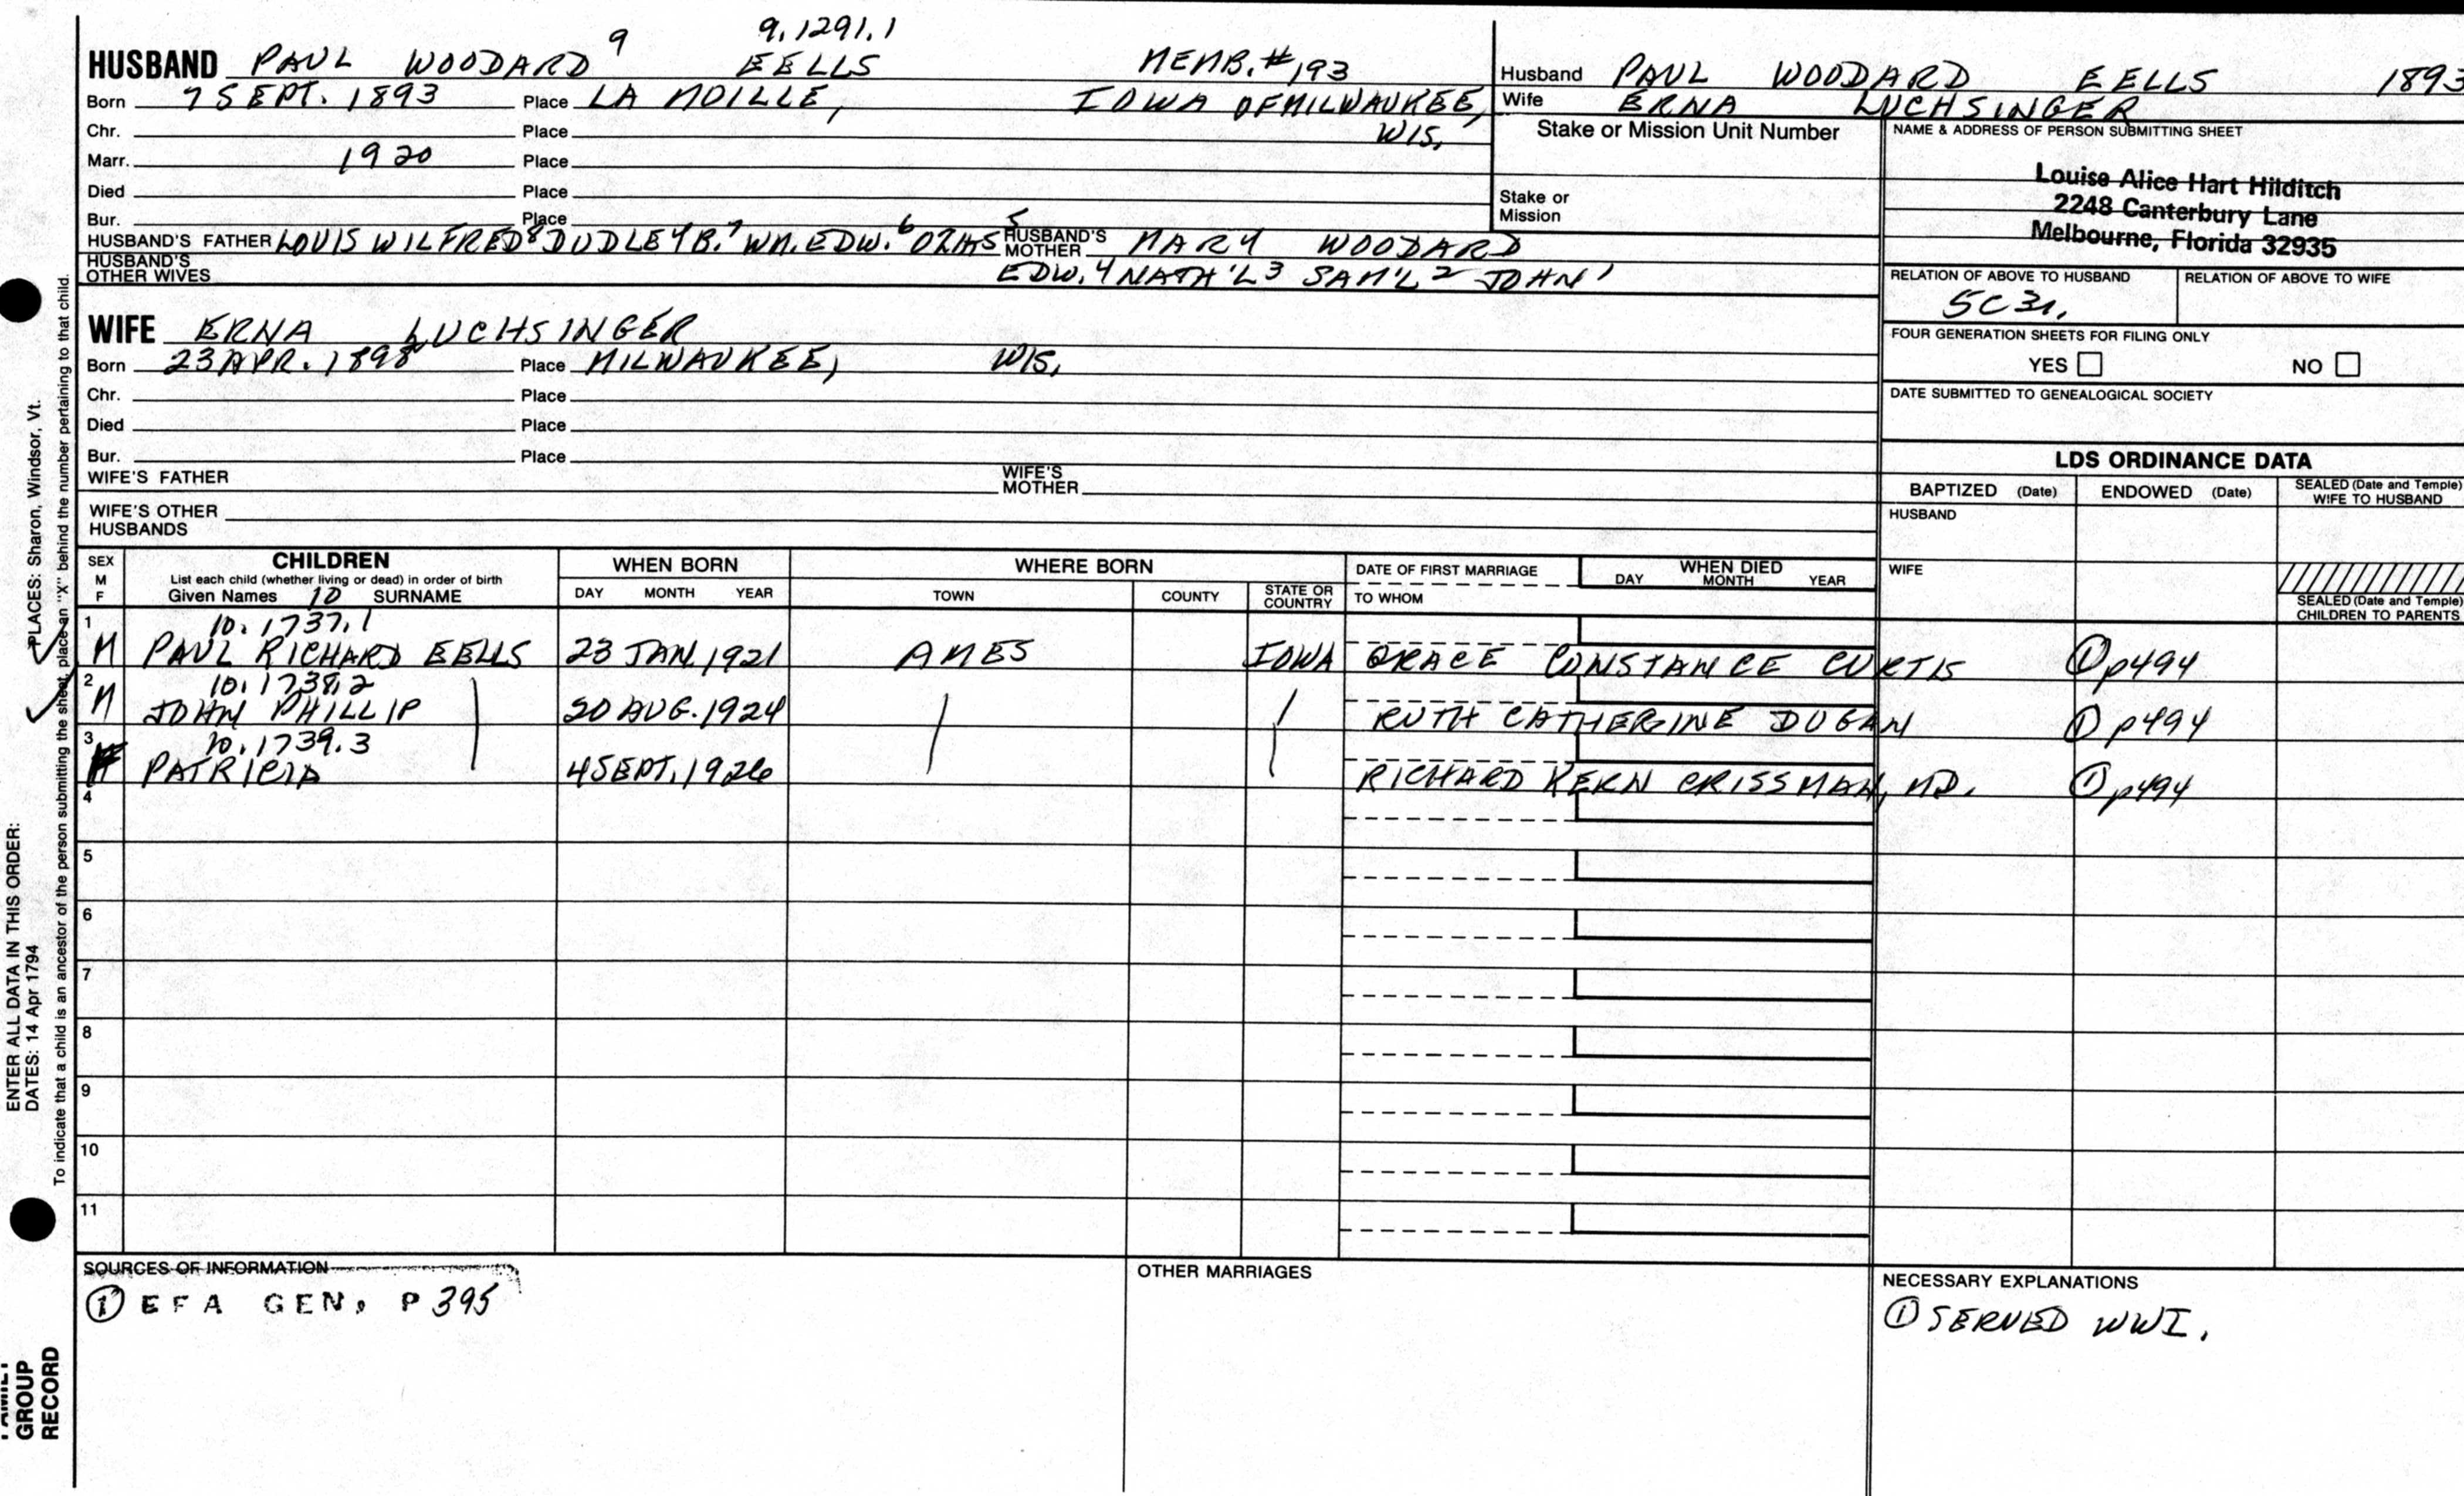 9.1291.1
HUSBAND PAUL WOODARD 9 EELLS MEMB. #193
Born 7 SEPT. 1893 Place LA MOILLE, IOWA OF MILWAUKEE,
Chr. Place WIS.
Marr. 1920 Place
Died Place
Bur. Place
HUSBAND'S FATHER LOUIS WILFRED 8 DUDLEY B. 7 WM. EDW. 6 OZIAS 5 HUSBAND'S MOTHER MARY WOODARD
HUSBAND'S OTHER WIVES EDW. 4 NATH'L 3 SAM'L 2 JOHN 1
WIFE ERNA LUCHSINGER
Born 23 APR. 1898 Place MILWAUKEE, WIS.
Chr. Place
Died Place
Bur. Place
WIFE'S FATHER WIFE'S MOTHER
WIFE'S OTHER HUSBANDS
Husband PAUL WOODARD EELLS 1893
Wife ERNA LUCHSINGER
Stake or Mission Unit Number
Stake or Mission
NAME & ADDRESS OF PERSON SUBMITTING SHEET
Louise Alice Hart Hilditch
2248 Canterbury Lane
Melbourne, Florida 32935
RELATION OF ABOVE TO HUSBAND RELATION OF ABOVE TO WIFE
5C3r.
FOUR GENERATION SHEETS FOR FILING ONLY
YES NO
DATE SUBMITTED TO GENEALOGICAL SOCIETY
LDS ORDINANCE DATA
BAPTIZED (Date) ENDOWED (Date) SEALED (Date and Temple) WIFE TO HUSBAND
HUSBAND
WIFE
SEALED (Date and Temple) CHILDREN TO PARENTS
SEX M F CHILDREN WHEN BORN WHERE BORN DATE OF FIRST MARRIAGE WHEN DIED
List each child (whether living or dead) in order of birth
Given Names 10 SURNAME DAY MONTH YEAR TOWN COUNTY STATE OR COUNTRY TO WHOM DAY MONTH YEAR
1 10.1737.1
M PAUL RICHARD EELLS 23 JAN. 1921 AMES IOWA GRACE CONSTANCE CURTIS ① p494
2 10.1738.2
M JOHN PHILLIP 20 AUG. 1924 RUTH CATHERINE DUGAN ① p494
3 10.1739.3
F PATRICIA 4 SEPT. 1926 RICHARD KERN CRISSMAN, MD. ① p494
4
5
6
7
8
9
10
11
SOURCES OF INFORMATION
① EFA GEN. P 395
OTHER MARRIAGES
NECESSARY EXPLANATIONS
① SERVED WWI.
PLACES: Sharon, Windsor, Vt.
To indicate that a child is an ancestor of the person submitting the sheet, place an "X" behind the number pertaining to that child.
ENTER ALL DATA IN THIS ORDER:
DATES: 14 Apr 1794
FAMILY
GROUP
RECORD